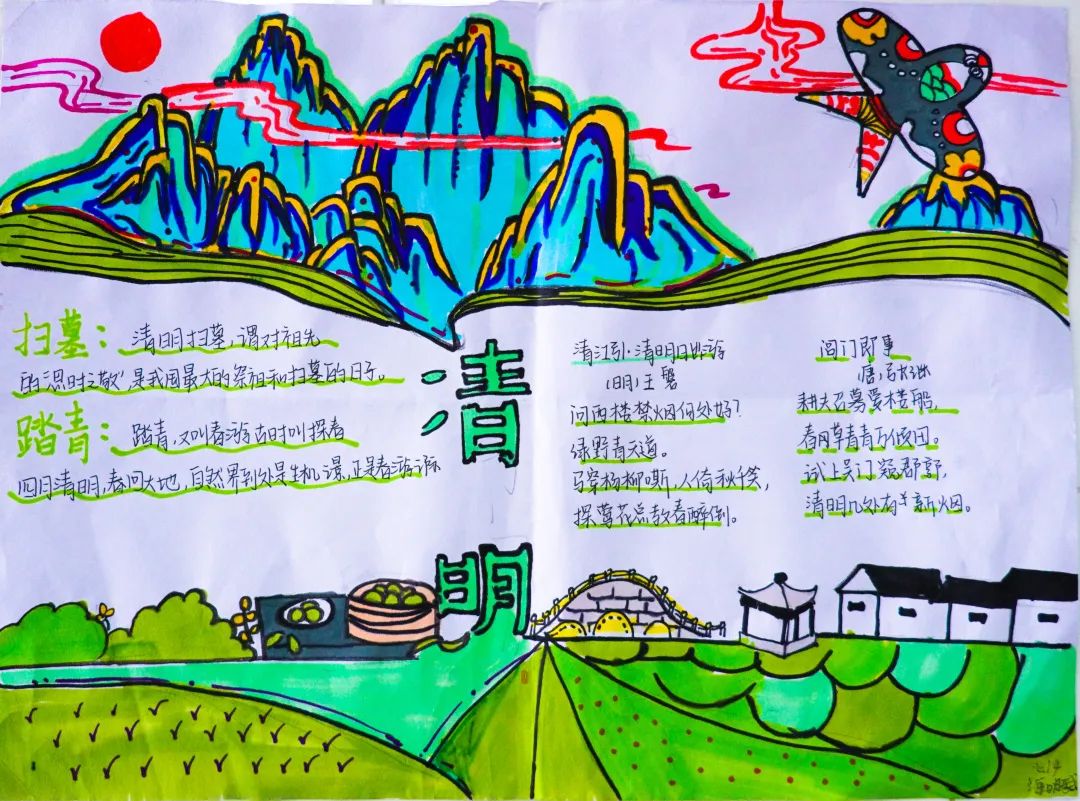 扫墓：清明扫墓，谓对祖先
的“思时之敬”是我国最大的祭祖和扫墓的日子。
踏青：踏青，又叫春游古时叫探春
四月清明，春回大地，自然界到处是生机
正是春游
清明
清江引·清明日出游
（明）王磐
问西楼禁烟何处好？
绿野青天道。
马穿杨柳嘶，人倚秋千笑，
探莺花总教春醉倒。
阊门即事
耕夫召募爱楼船，
春风草青青万顷田。
试上吴门窥郡郭，
清明几处有新烟。